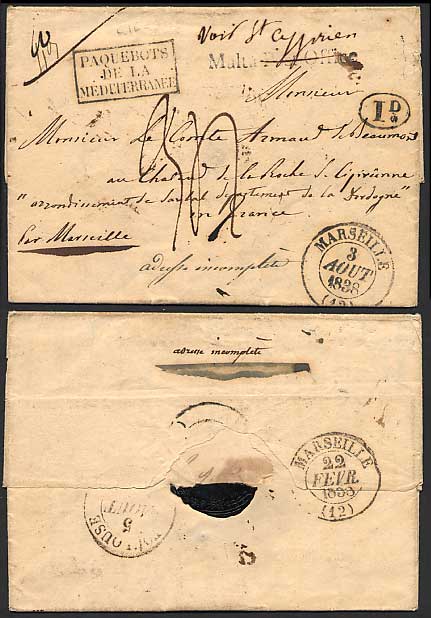 Voir St Cyprien
PAQUEBOTS
DE LA
MEDITERRANEE
Malta Post Office
Monsieur
1D
Monsieur Le Comte Armand de Beaumont
au Chateau de la Roche St Ciprienne
"arrondissement de Sarlat departement de la Dordogne"
en france
Par Marseille
adresse incomplète
MARSEILLE
3
AOUT
1838
(12)
adresse incomplète
MARSEILLE
22
FEVR.
1838
(12)
TOULOUSE
5
AOUT